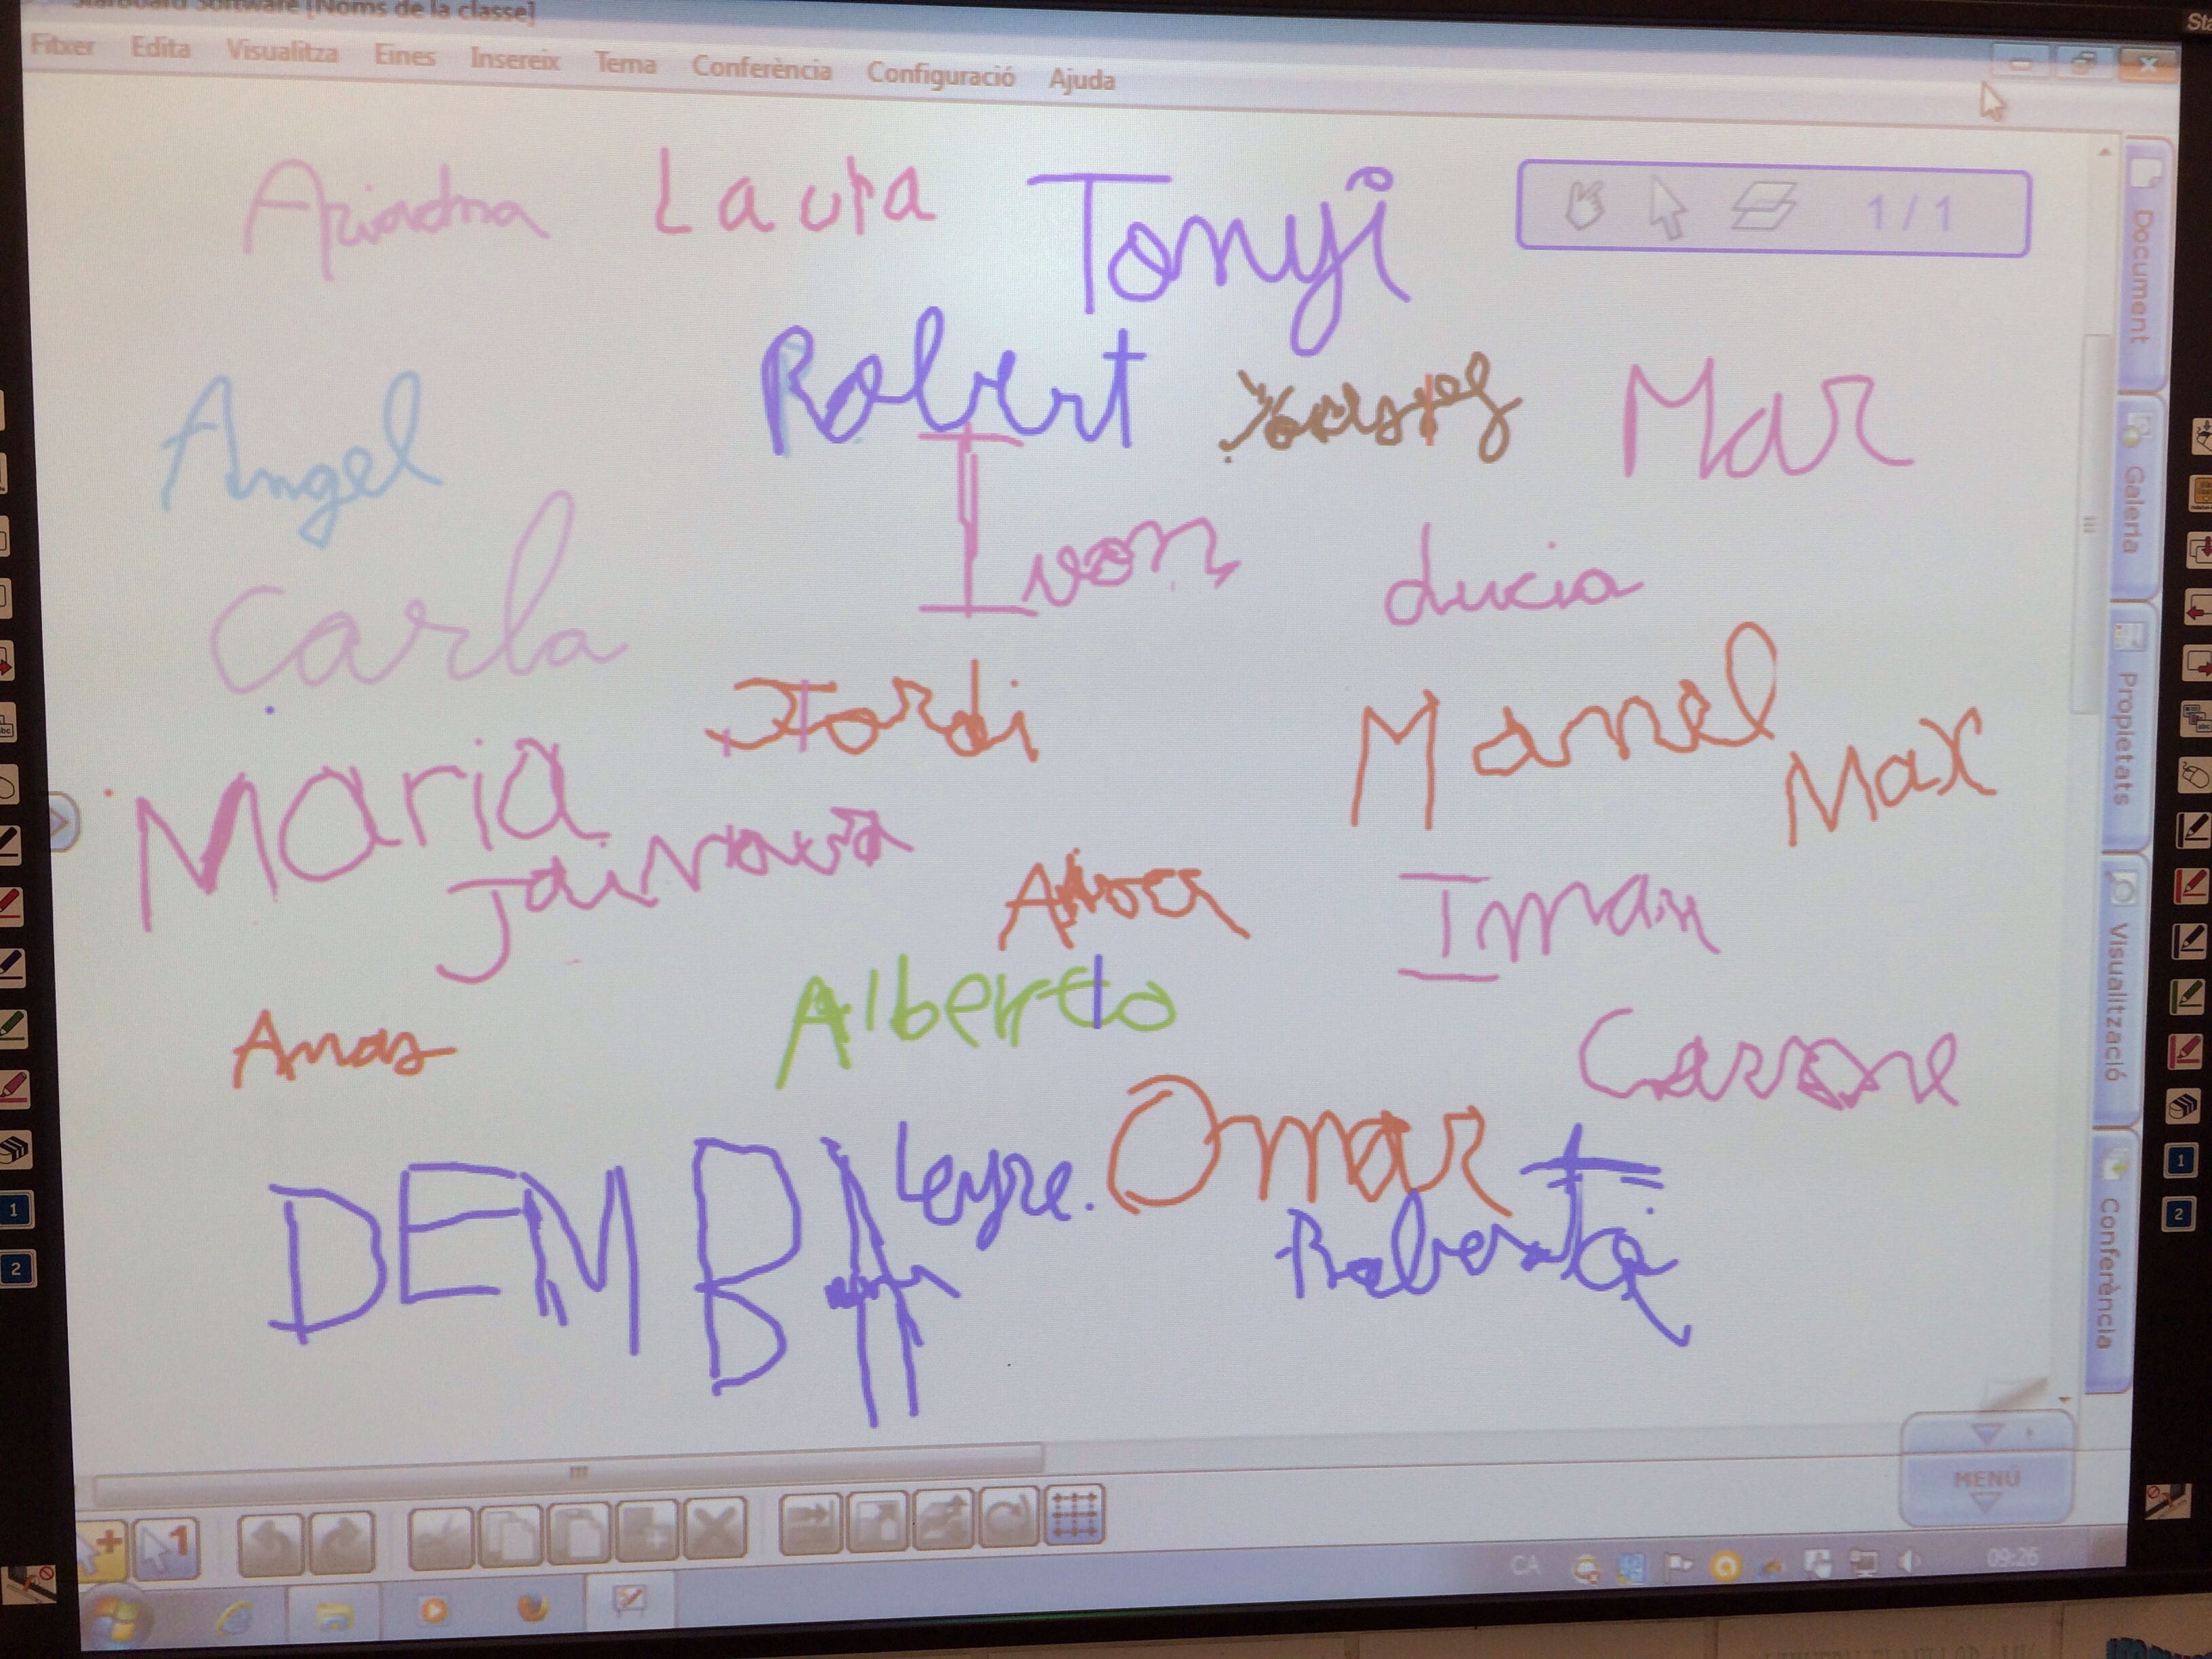 StarBoard Software [Noms de la classe]
Fitxer Edita Visualitza Eines Insereix Tema Conferència Configuració Ajuda
Ariadna Laura Tonyi
1 / 1
Angel Robert Mar
Ivon Lucia
Carla
Jordi Manel Max
Maria
Iman
Anas Alberto
Carome
DEMBA Leyre. Omar
Roberta
Document
Galeria
Propietats
Visualització
Conferència
MENÚ
1
2
1
2
1
CA 09:26